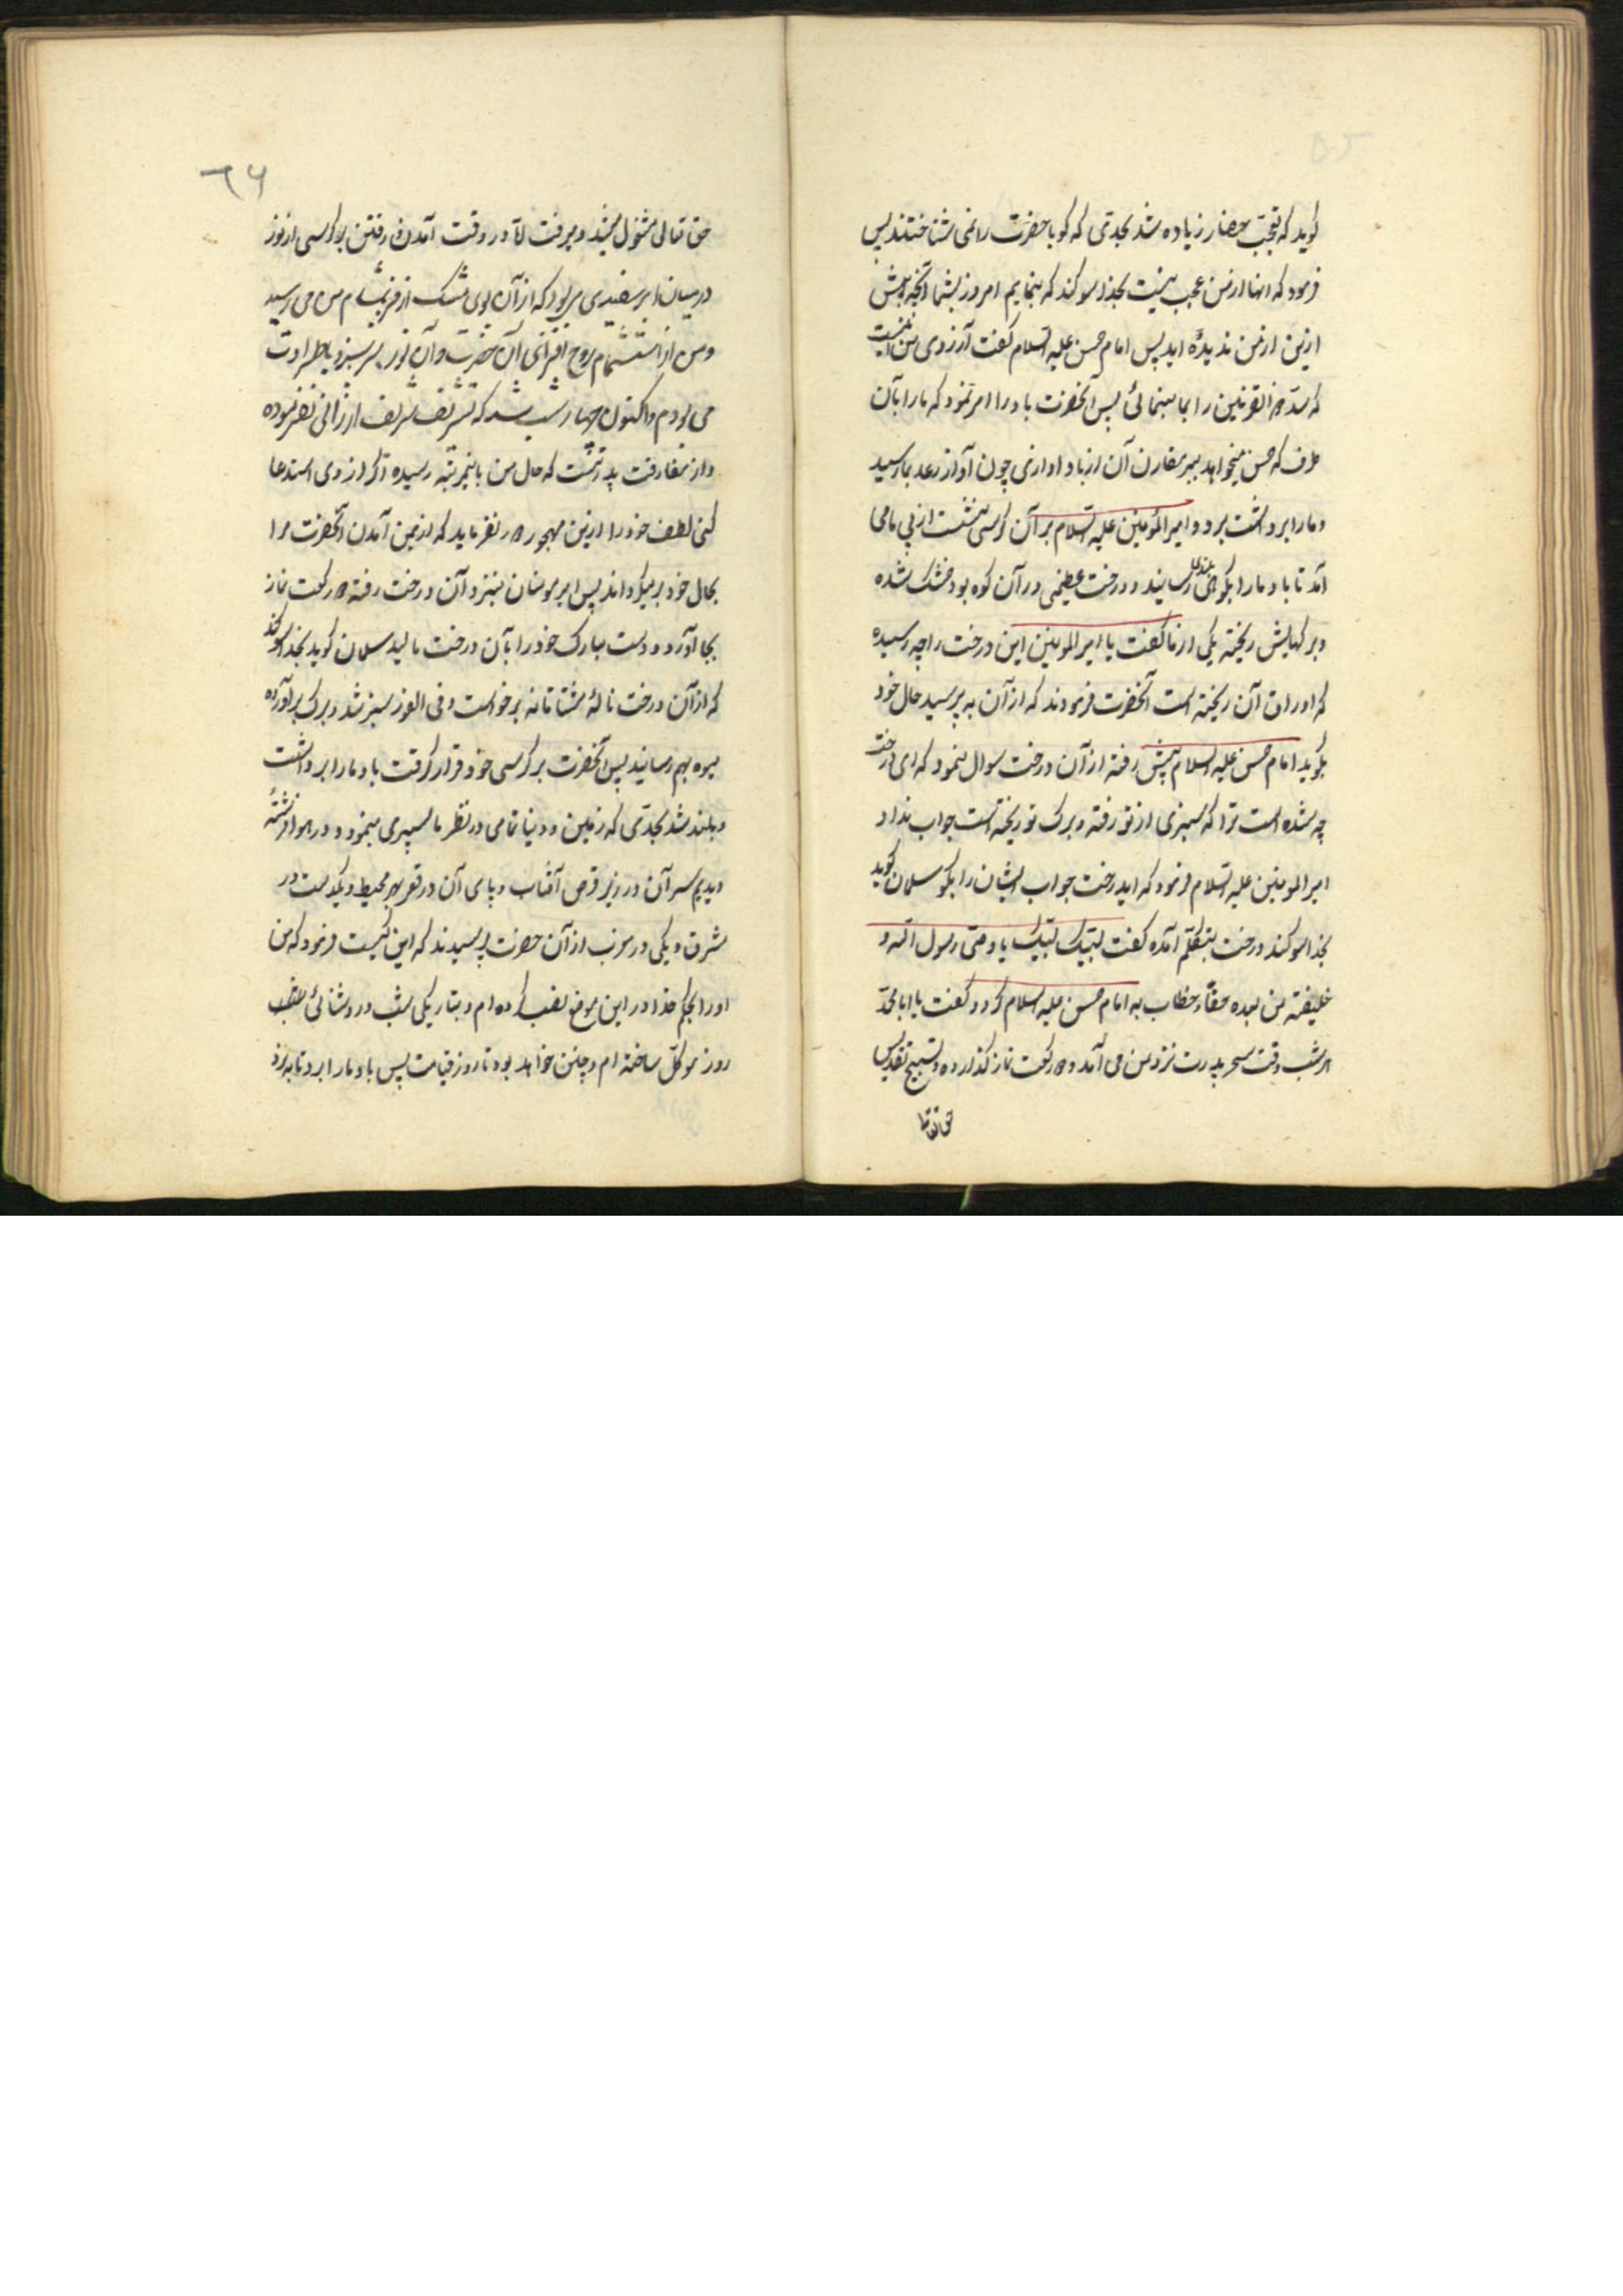 کوید که تعجب حضار زیاده شد بحدی که کویا حضرت را نمی شناختند پس
فرمود که اینها از من عجب نیست بخدا سوکند که بنمایم امروز بشما آنچه پیش
ازین از من ندیده اید پس امام حسن علیه السلام کفت آرزوی من اینست
که سد ذو القرنین را بما بنمائی پس آنحضرت باد را امر نمود که ما را بآن
طرف که حسن میخواهد ببر مقارن آن از باد اوازی چون آواز رعد بما رسید
و ما را برداشت برد و امیر المؤمنین علیه السلام بر آن کرسی نشست از پی ما می
آمد تا باد ما را بکوهی بلند رسانید و درخت عظیمی در آن کوه بود خشک شده
و برکهایش ریخته یکی از ما کفت یا امیر المومنین این درخت را چه رسیده
که اوراق آن ریخته است آنحضرت فرمودند که از آن بپرسید حال خود
بکوید امام حسن علیه السلام پیش رفته از آن درخت سوال نمود که ای درخت
چه شده است ترا که سبزی از تو رفته و برک تو ریخته است جواب نداد
امیر المومنین علیه السلام فرمود که ایدرخت جواب ایشان را بکو سلمان کوید
بخدا سوکند درخت بتکلم آمده کفت لبیک لبیک یا وصی رسول الله و
خلیفته من بعده حقا و خطاب به امام حسن علیه السلام کرد و کفت یا ابا محمد
هر شب وقت سحر پدرت نزد من می آمد و دو رکعت نماز کذارده و تسبیح تقدیس
حق تعالی
٦٦
حق تعالی مشغول میشد و میرفت اما در وقت آمدن و رفتن بر کرسی از نور
در میان ابر سفیدی می بود که از آن بوی مشک از فر بمشام من می رسید
و من از استشمام روح افزای آن حضرت و آن نور سرسبز و باطراوت
می بودم و اکنون چهار شب شد که تشریف شریف ارزانی نفرموده
و از مفارقت پدرتست که حال من باینمرتبه رسیده اکر از وی استدعا
کنی لطف خود را ازین مهجور دور نفرماید که از یمن آمدن آنحضرت مرا
بحال خود بر میکرداند پس امیر مومنان نیز نزد آن درخت رفته دو رکعت نماز
بجا آورد و دست مبارک خود را بآن درخت مالید سلمان کوید بخدا سوکند
که از آن درخت ناله مشتاقانه برخواست و فی الفور سبز شد و برک برآورده
میوه بهم رسانید پس آنحضرت بر کرسی خود قرار کرفت باد ما را برداشت
و بلند شد بحدی که زمین و دنیا تمامی در نظر ما سپری مینمود و در هوا فرشته
دیدیم سر آن در زیر قرص آفتاب و پای آن در قعر بحر محیط و یکدست در
مشرق و یکی در مغرب از آن حضرت پرسیدند که این کیست فرمود که من
اورا بحکم خدا در این موضع نصب کرده ام و بتاریکی شب و روشنائی
روز موکل ساخته ام و چنین خواهد بود تا روز قیامت پس باد ما را برد تا به نزد